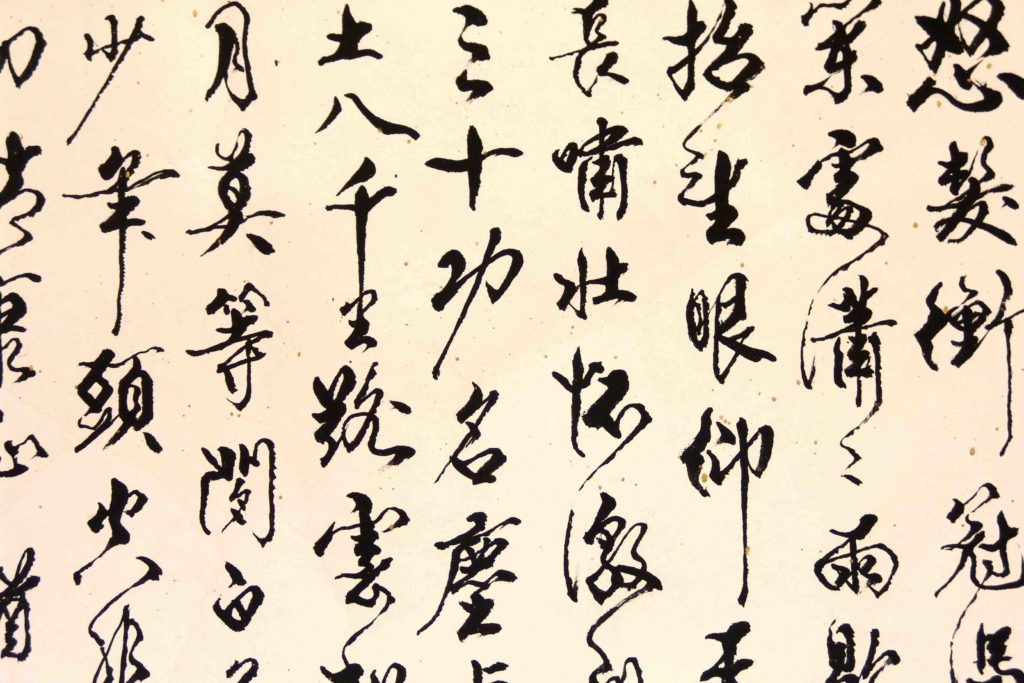 怒髮衝冠憑
闌處瀟〻雨歇
抬望眼仰天
長嘯壯懷激烈
三十功名塵與
土八千里路雲和
月莫等閒白
少年頭空悲
切靖康恥猶